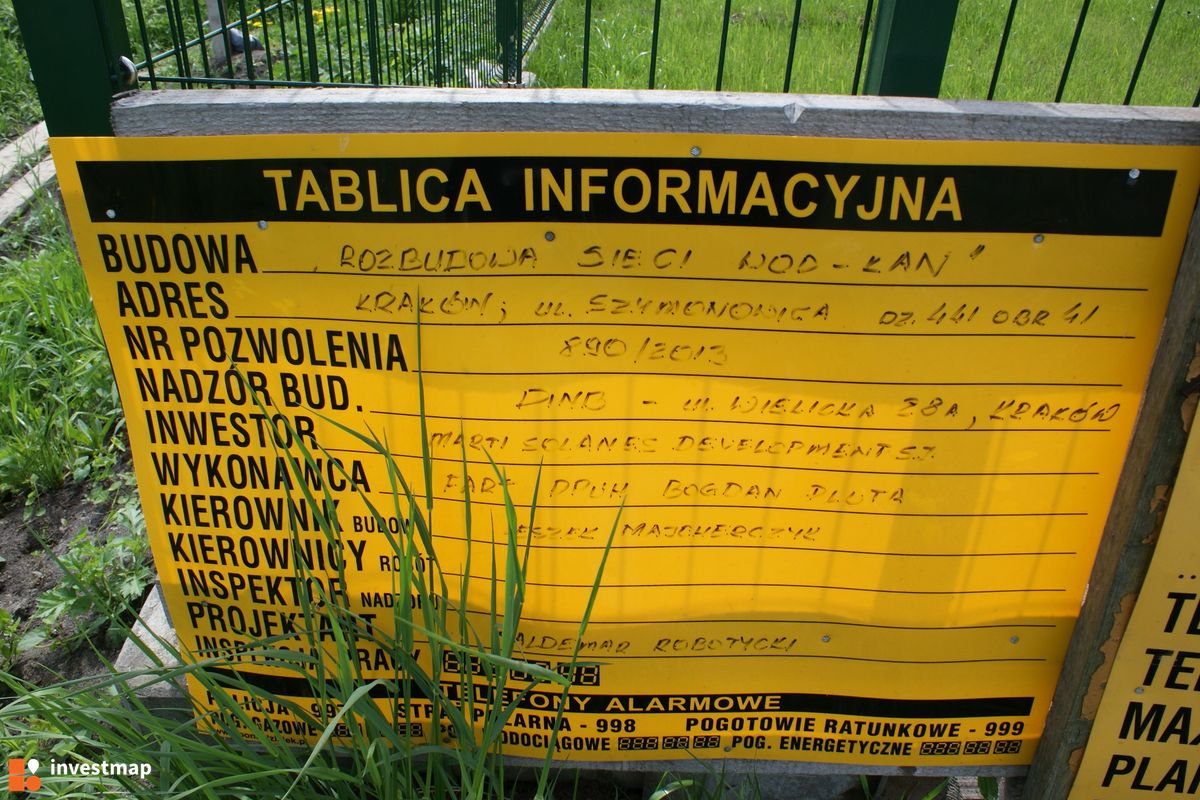 TABLICA INFORMACYJNA
BUDOWA „ROZBUDOWA SIECI WOD-KAN"
ADRES KRAKÓW, UL. SZYMONOWICA DZ. 441 OBR 41
NR POZWOLENIA 890/2013
NADZÓR BUD. PINB - UL. WIELICKA 28A, KRAKÓW
INWESTOR MARTI SOLANES DEVELOPMENT SJ.
WYKONAWCA FART PPUH BOGDAN PLUTA
KIEROWNIK BUDOWY MAJCHERCZYK
KIEROWNICY ROBÓT
INSPEKTOR NADZORU
PROJEKTANT WALDEMAR ROBOTYCKI
INSPEKCJA PRACY
TELEFONY ALARMOWE
POLICJA - 997 STRAŻ POŻARNA - 998 POGOTOWIE RATUNKOWE - 999
POG. GAZOWE POG. WODOCIĄGOWE POG. ENERGETYCZNE
TE
TEL
MAX
PLAN
investmap